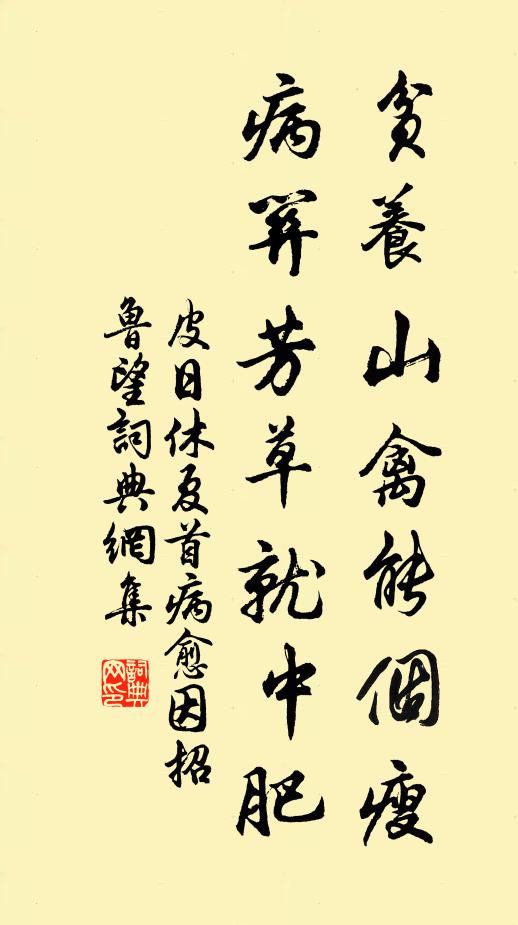 貧養山禽能個瘦
病關芳草就中肥
皮日休夏首病愈因招
魯望詞典網集
詞典网印